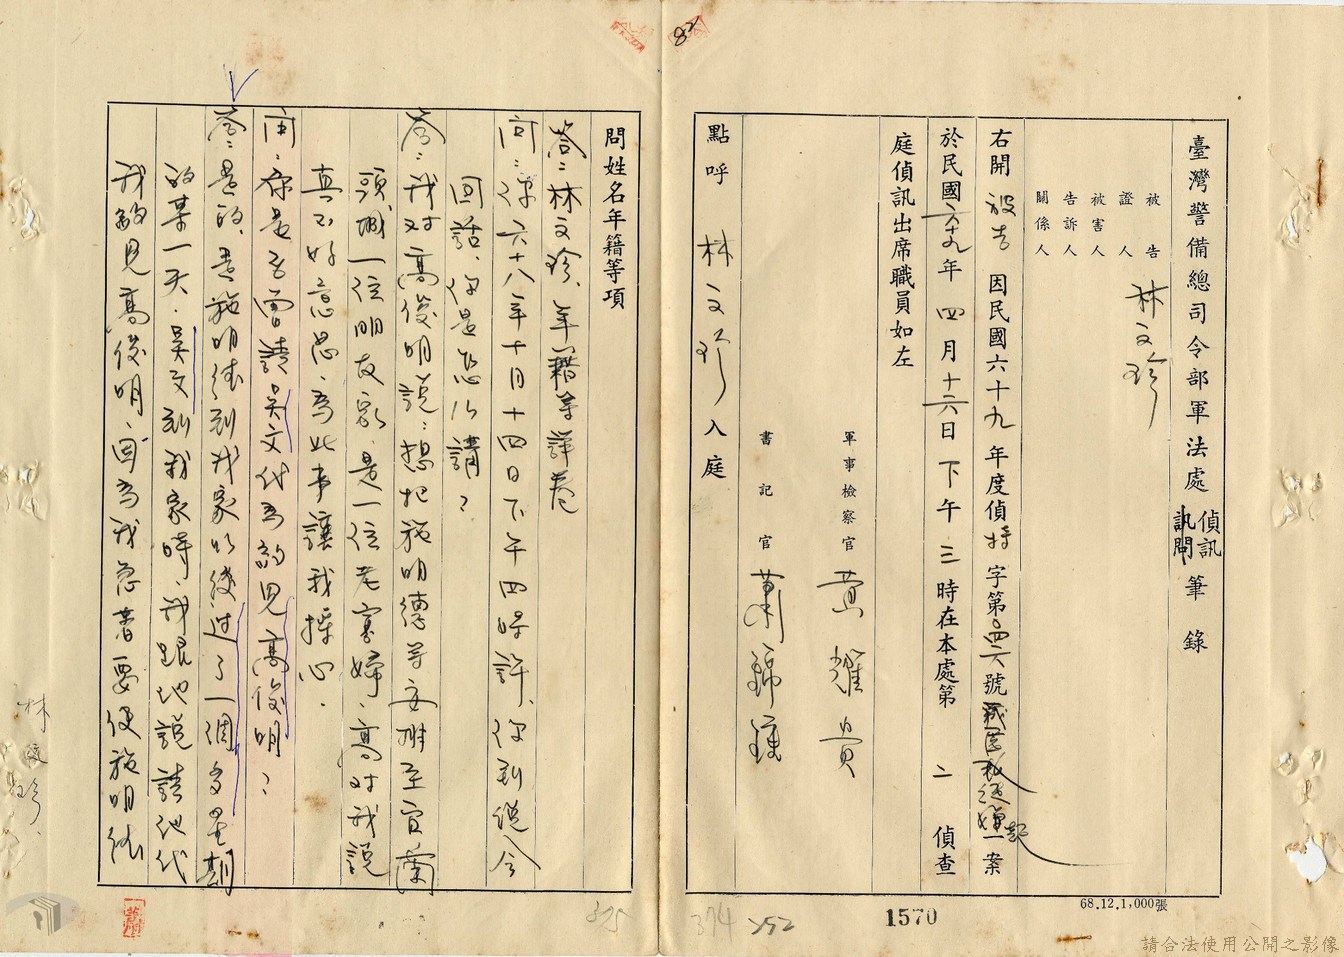 82
臺灣警備總司令部軍法處 偵訊 訊問 筆錄
被告 林文珍
證人
被害人
告訴人
關係人
右開 被告 因民國六十九年度偵特字第 號 一案
於民國六十九年四月十六日下午三時在本處第二偵查
庭偵訊出席職員如左
軍事檢察官 黃耀貴
書記官 蕭錦鍾
點呼 林文珍 入庭
問姓名年籍等項
答：林文珍、年籍等詳卷
問：您六十八年十月十四日下午四時許、你到總會
回話、你是怎么講？
答：我对高俊明說：想把施明德等安排至宜蘭
頭城一位朋友家、是一位老寡婦、高对我說
真不好意思為此事讓我操心．
問：你是否曾請吳文代為約見高俊明？
答：是的、是施明德到我家以後过了一個多星期
的某一天．吳文到我家時、我跟他說請他代
我約見高俊明、因為我急着要使施明德
林文珍
68.12.1,000張
1570
374 252
325
請合法使用公開之影像